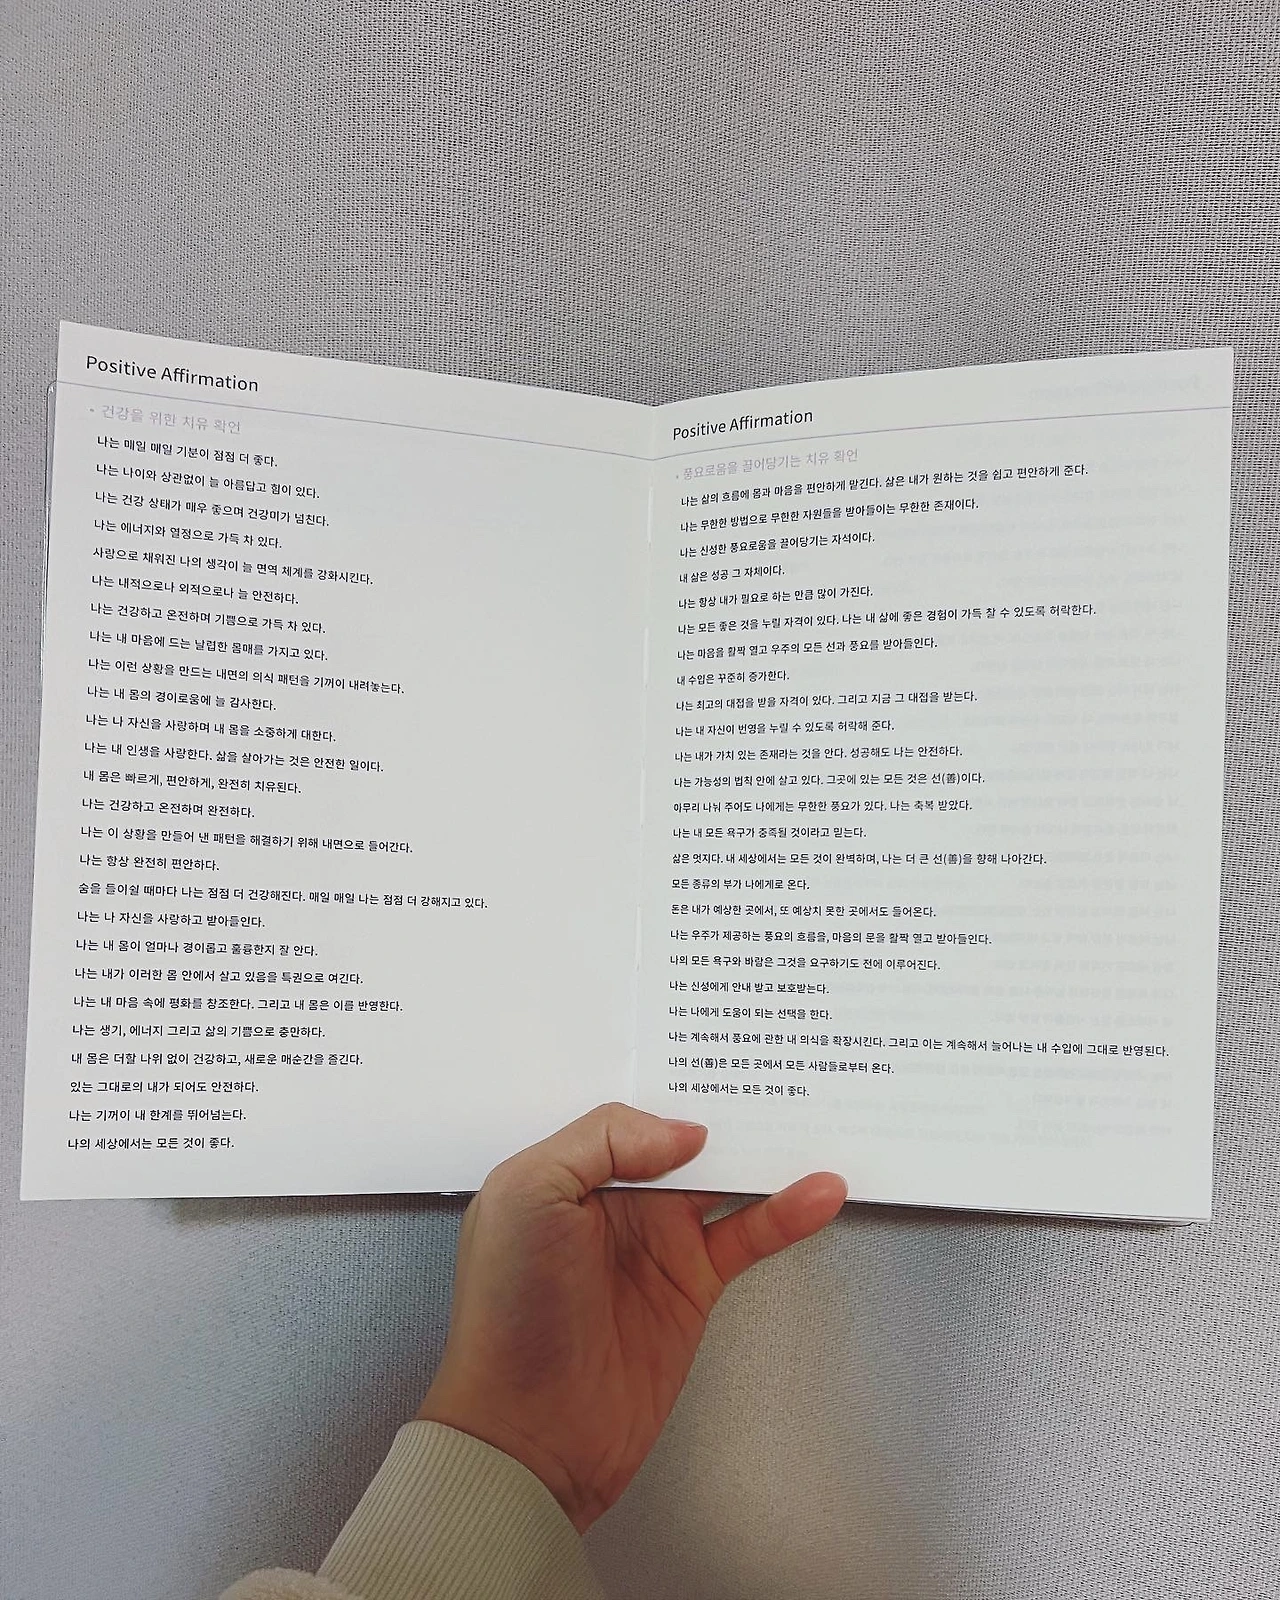 Positive Affirmation
• 건강을 위한 치유 확언
나는 매일 매일 기분이 점점 더 좋다.
나는 나이와 상관없이 늘 아름답고 힘이 있다.
나는 건강 상태가 매우 좋으며 건강미가 넘친다.
나는 에너지와 열정으로 가득 차 있다.
사랑으로 채워진 나의 생각이 늘 면역 체계를 강화시킨다.
나는 내적으로나 외적으로나 늘 안전하다.
나는 건강하고 온전하며 기쁨으로 가득 차 있다.
나는 내 마음에 드는 날렵한 몸매를 가지고 있다.
나는 이런 상황을 만드는 내면의 의식 패턴을 기꺼이 내려놓는다.
나는 내 몸의 경이로움에 늘 감사한다.
나는 나 자신을 사랑하며 내 몸을 소중하게 대한다.
나는 내 인생을 사랑한다. 삶을 살아가는 것은 안전한 일이다.
내 몸은 빠르게, 편안하게, 완전히 치유된다.
나는 건강하고 온전하며 완전하다.
나는 이 상황을 만들어 낸 패턴을 해결하기 위해 내면으로 들어간다.
나는 항상 완전히 편안하다.
숨을 들이쉴 때마다 나는 점점 더 건강해진다. 매일 매일 나는 점점 더 강해지고 있다.
나는 나 자신을 사랑하고 받아들인다.
나는 내 몸이 얼마나 경이롭고 훌륭한지 잘 안다.
나는 내가 이러한 몸 안에서 살고 있음을 특권으로 여긴다.
나는 내 마음 속에 평화를 창조한다. 그리고 내 몸은 이를 반영한다.
나는 생기, 에너지 그리고 삶의 기쁨으로 충만하다.
내 몸은 더할 나위 없이 건강하고, 새로운 매순간을 즐긴다.
있는 그대로의 내가 되어도 안전하다.
나는 기꺼이 내 한계를 뛰어넘는다.
나의 세상에서는 모든 것이 좋다.
Positive Affirmation
• 풍요로움을 끌어당기는 치유 확언
나는 삶의 흐름에 몸과 마음을 편안하게 맡긴다. 삶은 내가 원하는 것을 쉽고 편안하게 준다.
나는 무한한 방법으로 무한한 자원들을 받아들이는 무한한 존재이다.
나는 신성한 풍요로움을 끌어당기는 자석이다.
내 삶은 성공 그 자체이다.
나는 항상 내가 필요로 하는 만큼 많이 가진다.
나는 모든 좋은 것을 누릴 자격이 있다. 나는 내 삶에 좋은 경험이 가득 찰 수 있도록 허락한다.
나는 마음을 활짝 열고 우주의 모든 선과 풍요를 받아들인다.
내 수입은 꾸준히 증가한다.
나는 최고의 대접을 받을 자격이 있다. 그리고 지금 그 대접을 받는다.
나는 내 자신이 번영을 누릴 수 있도록 허락해 준다.
나는 내가 가치 있는 존재라는 것을 안다. 성공해도 나는 안전하다.
나는 가능성의 법칙 안에 살고 있다. 그곳에 있는 모든 것은 선(善)이다.
아무리 나눠 주어도 나에게는 무한한 풍요가 있다. 나는 축복 받았다.
나는 내 모든 욕구가 충족될 것이라고 믿는다.
삶은 멋지다. 내 세상에서는 모든 것이 완벽하며, 나는 더 큰 선(善)을 향해 나아간다.
모든 종류의 부가 나에게로 온다.
돈은 내가 예상한 곳에서, 또 예상치 못한 곳에서도 들어온다.
나는 우주가 제공하는 풍요의 흐름을, 마음의 문을 활짝 열고 받아들인다.
나의 모든 욕구와 바람은 그것을 요구하기도 전에 이루어진다.
나는 신성에게 안내 받고 보호받는다.
나는 나에게 도움이 되는 선택을 한다.
나는 계속해서 풍요에 관한 내 의식을 확장시킨다. 그리고 이는 계속해서 늘어나는 내 수입에 그대로 반영된다.
나의 선(善)은 모든 곳에서 모든 사람들로부터 온다.
나의 세상에서는 모든 것이 좋다.